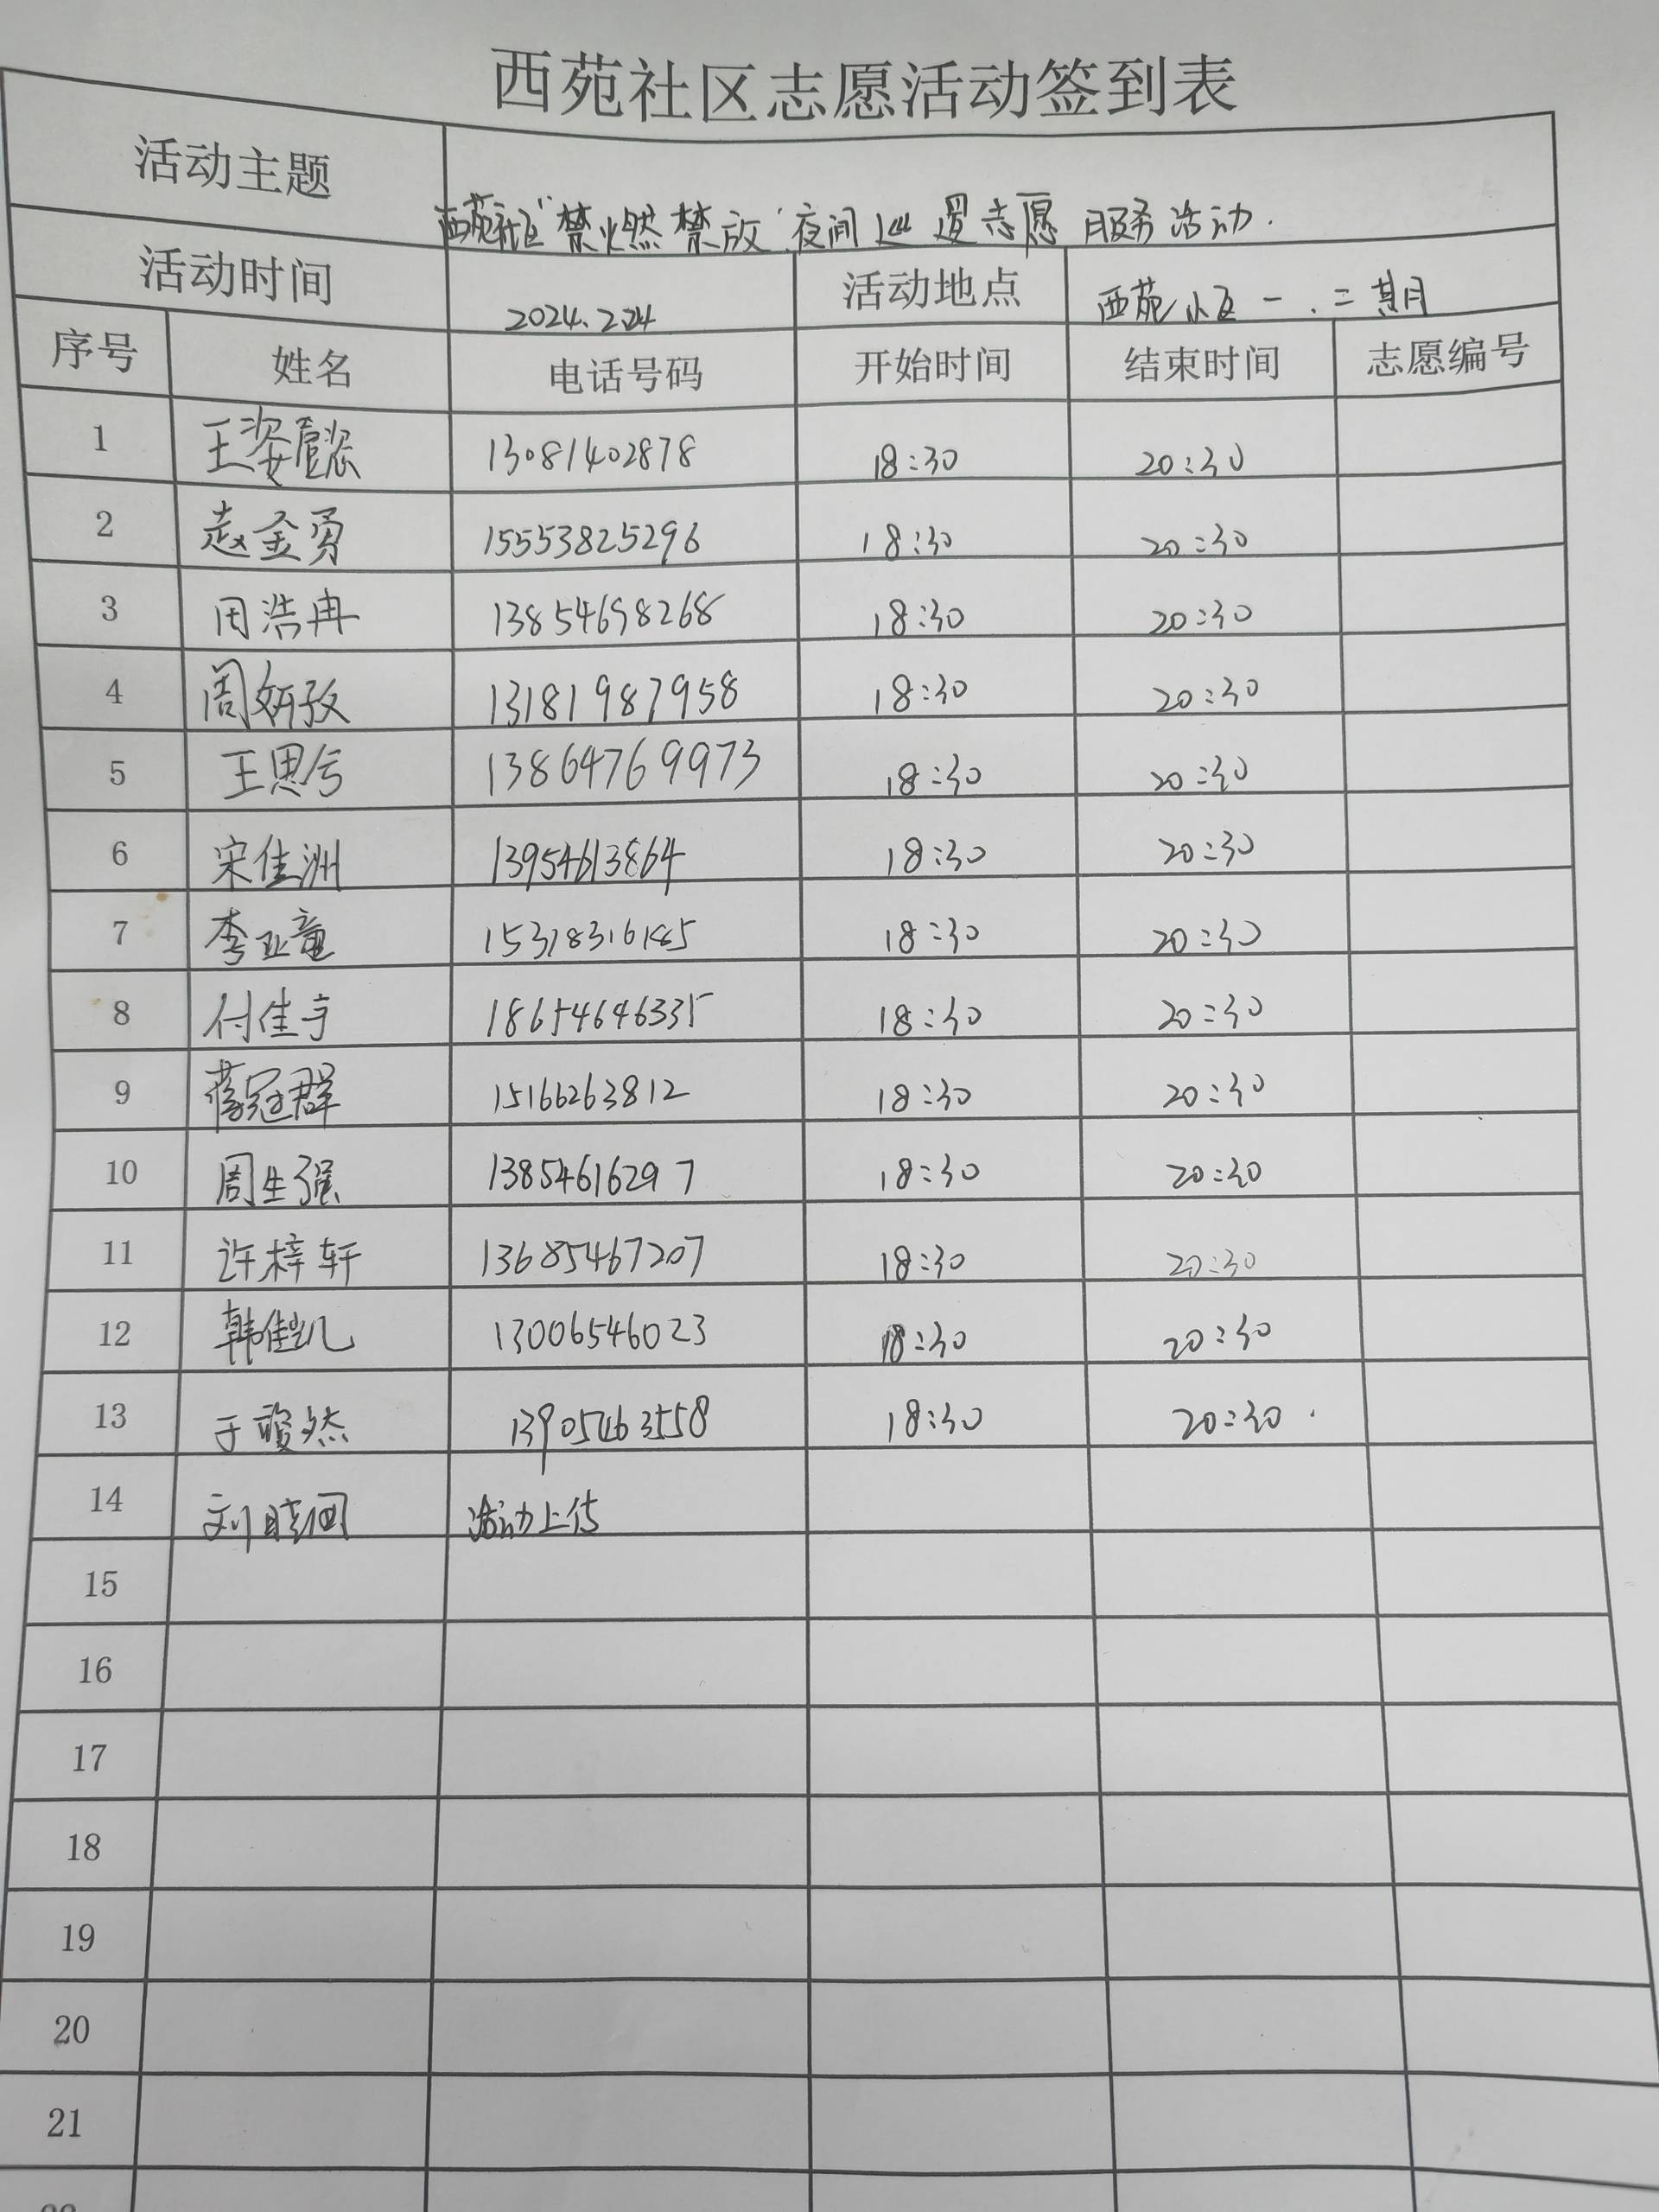 西苑社区志愿活动签到表
活动主题 西苑社区"禁燃禁放"夜间巡逻志愿服务活动.
活动时间 2024.2.24 活动地点 西苑小区一.二期
序号 姓名 电话号码 开始时间 结束时间 志愿编号
1 王姿 13081402878 18:30 20:30
2 赵金勇 15553825296 18:30 20:30
3 周浩冉 13854698268 18:30 20:30
4 周妍孜 13181987958 18:30 20:30
5 王思 13864769973 18:30 20:30
6 宋佳洲 13954613864 18:30 20:30
7 李亚童 18:30 20:30
8 付佳宇 18654646335 18:30 20:30
9 蒋冠群 15166263812 18:30 20:30
10 周生强 13854616297 18:30 20:30
11 许梓轩 13685467207 18:30 20:30
12 韩佳凯 13006546023 18:30 20:30
13 于竣然 13905463558 18:30 20:30
14 刘 活动上传
15
16
17
18
19
20
21